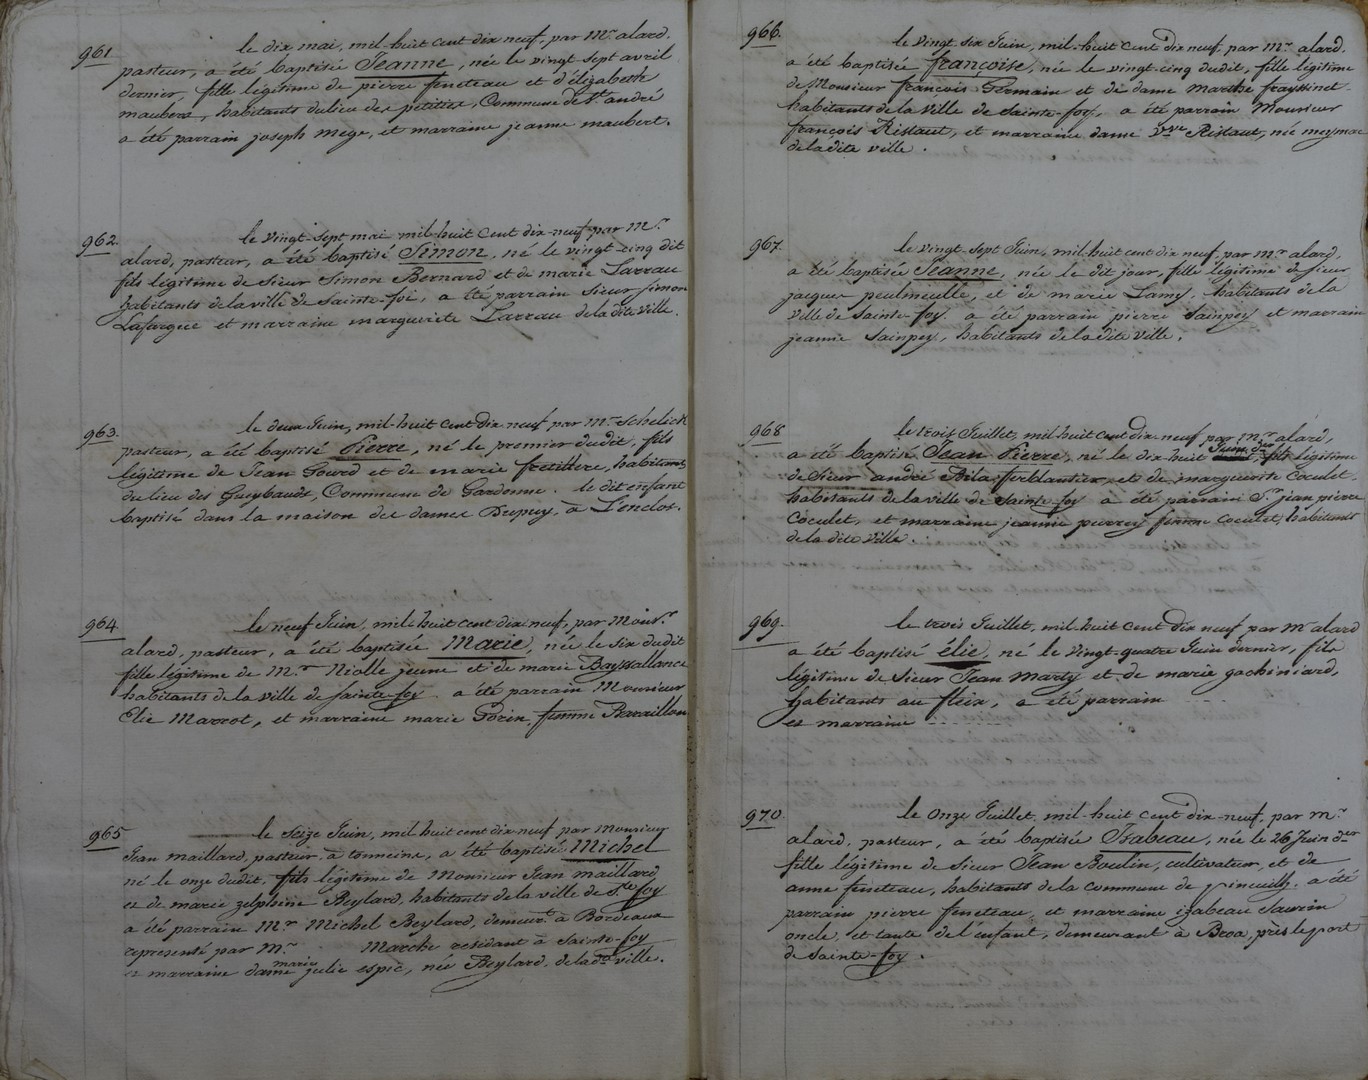 961 le dix mai, mil-huit cent dix neuf, par Mr alard,
pasteur, a été baptisée Jeanne, née le vingt sept avril
dernier, fille légitime de pierre feneteau et d'élizabeth
maubert, habitants du lieu des petitits, Commune de St. andré
a été parrain joseph mege, et marraine jeanne maubert.
962. le vingt-sept mai mil-huit cent dix-neuf par Mr.
alard, pasteur, a été baptisé Simon, né le vingt-cinq dit
fils légitime de sieur Simon Bernard et de marie Larrau
habitants de la ville de Sainte-foi, a été parrain sieur simon
Lafargue et marraine marguerite Larrau de la dite ville.
963. le deux Juin, mil-huit cent dix neuf par Mr. Schelick
pasteur, a été baptisé Pierre, né le premier dudit, fils
légitime de Jean Gourd et de marie fretillere, habitants
du lieu des Gueybauds, Commune de Gardonne. le dit enfant
baptisé dans la maison des dames Dupuy, à L'enclos.
964. le neuf Juin, mil-huit cent dix neuf, par Monsr.
alard, pasteur, a été baptisée Marie, née le six dudit
fille légitime de Mr. Niolle jeune et de marie Bayssallance
habitants de la ville de sainte-foy. a été parrain Monsieur
Elie Marrot, et marraine marie Gorin, femme Bavaillon
965 le Seize Juin, mil huit cent dix-neuf par monsieur
Jean maillard, pasteur à tonneins, a été baptisé Michel
né le onze dudit, fils légitime de Monsieur Jean maillard
et de marie zelphine Beylard, habitants de la ville de Ste foy
a été parrain Mr Michel Beylard, demeurt. à Bordeaux
représenté par Mr. Marche résidant à Sainte-foy
et marraine dame marie julie espic, née Beylard, de la de ville.
966. le vingt six Juin, mil-huit cent dix neuf, par Mr alard,
a été baptisée françoise, née le vingt-cinq dudit, fille légitime
de Monsieur françois Germain et de dame marthe frayssinet
habitants de la ville de sainte-foy, a été parrain Monsieur
françois Ristaut, et marraine dame vve Ristaut, née meymac
de la dite ville.
967. le vingt-sept Juin, mil-huit cent dix neuf, par Mr alard,
a été baptisée Jeanne, née le dit jour, fille légitime de sieur
jacques peulmeulle, et de marie Lamy, habitants de la
ville de Sainte-foy. a été parrain pierre Sainpey et marraine
jeanne Sainpey, habitants de la dite ville.
968 le trois Juillet, mil-huit cent dix-neuf par Mr alard,
a été baptisé Jean Pierre, né le dix-huit Juin der, fils légitime
de Sieur andré Bila ferblantier, et de marguerite Coculet,
habitants de la ville de Sainte-foy a été parrain Sr. jean pierre
Coculet, et marraine jeanne pierrey femme Coculet, habitants
de la dite ville.
969. le trois Juillet, mil-huit cent dix neuf par Mr alard
a été baptisé élie, né le vingt-quatre Juin dernier, fils
légitime de Sieur Jean marty et de marie gachiniard,
habitants au fleix, a été parrain
et marraine
970. le Onze Juillet, mil-huit cent dix-neuf, par Mr.
alard, pasteur, a été baptisée Isabeau, née le 26 Juin der
fille légitime de Sieur Jean Boulin, cultivateur, et de
anne feneteau, habitants de la commune de pineuilh. a été
parrain pierre feneteau, et marraine izabeau Saurin
oncle, et tante de l'enfant, demeurant à Broa, près le port
de Sainte-foy.